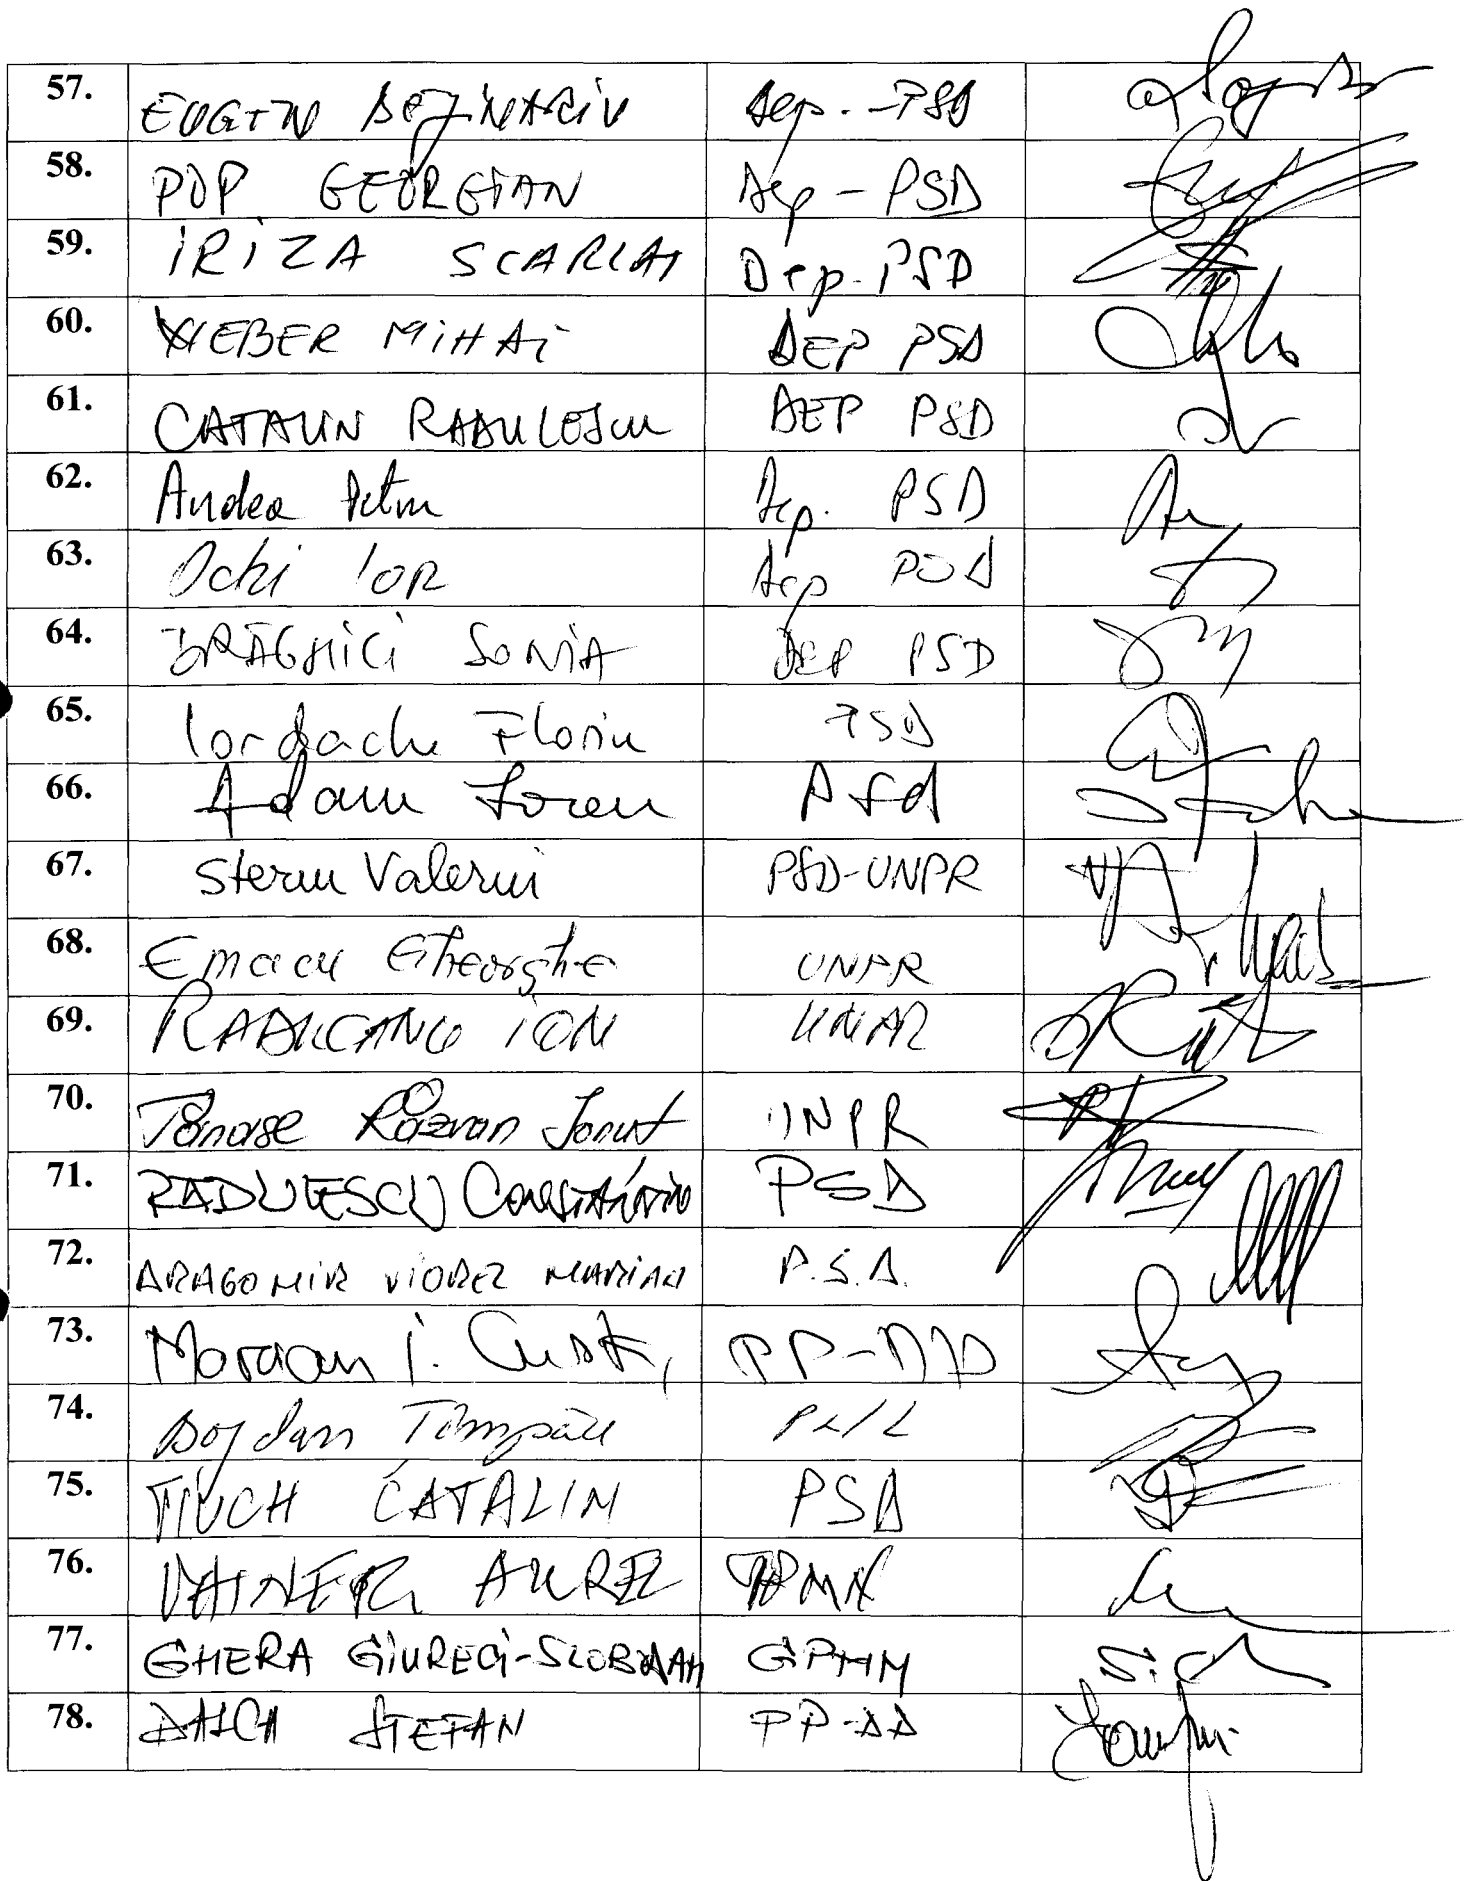 57. EUGEN BEJINARIU Dep. - PSD
58. POP GEORGIAN Dep - PSD
59. IRIZA SCARLAT Dep. PSD
60. WEBER MIHAI DEP PSD
61. CATALIN RADULESCU DEP PSD
62. Andea Petru Dep. PSD
63. Ochi Ion Dep PSD
64. DRĂGHICI SONIA DEP PSD
65. Iordache Florin PSD
66. Adam Ioan PSd
67. Steriu Valeriu PSD-UNPR
68. Emacu Gheorghe UNPR
69. RADUCANU ION UNPR
70. Tănase Răzvan Ionut UNPR
71. RADULESCU Constantin PSD
72. DRAGOMIR VIOREL MARIAN P.S.D.
73. Moraou I. PP-DD
74. Bogdan Tîmpău
75. TIUCH CATALIN PSD
76. VAINER AUREL
77. GHERA GIURECI-SLOBODAN GPMN
78. DALCA STEFAN PP-DD